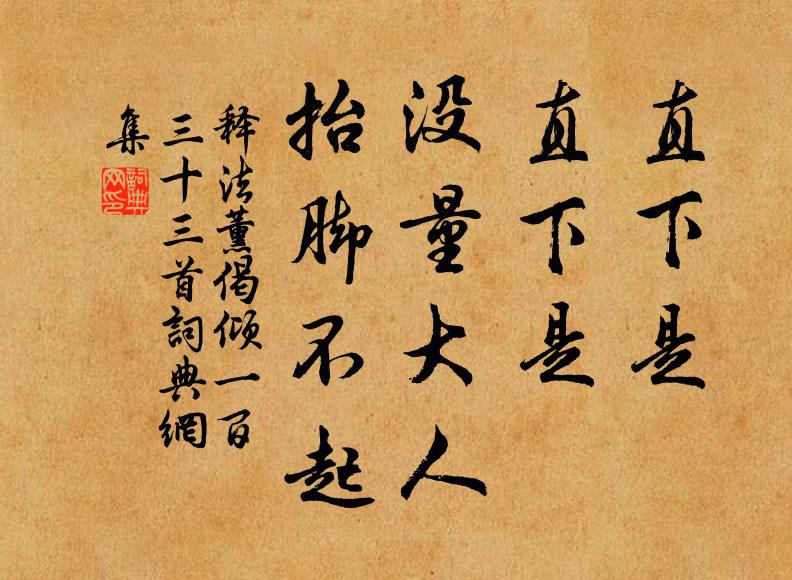 直下是
直下是
没量大人
抬脚不起
释法薰偈倾一百
三十三首詞典網
集
詞典網印